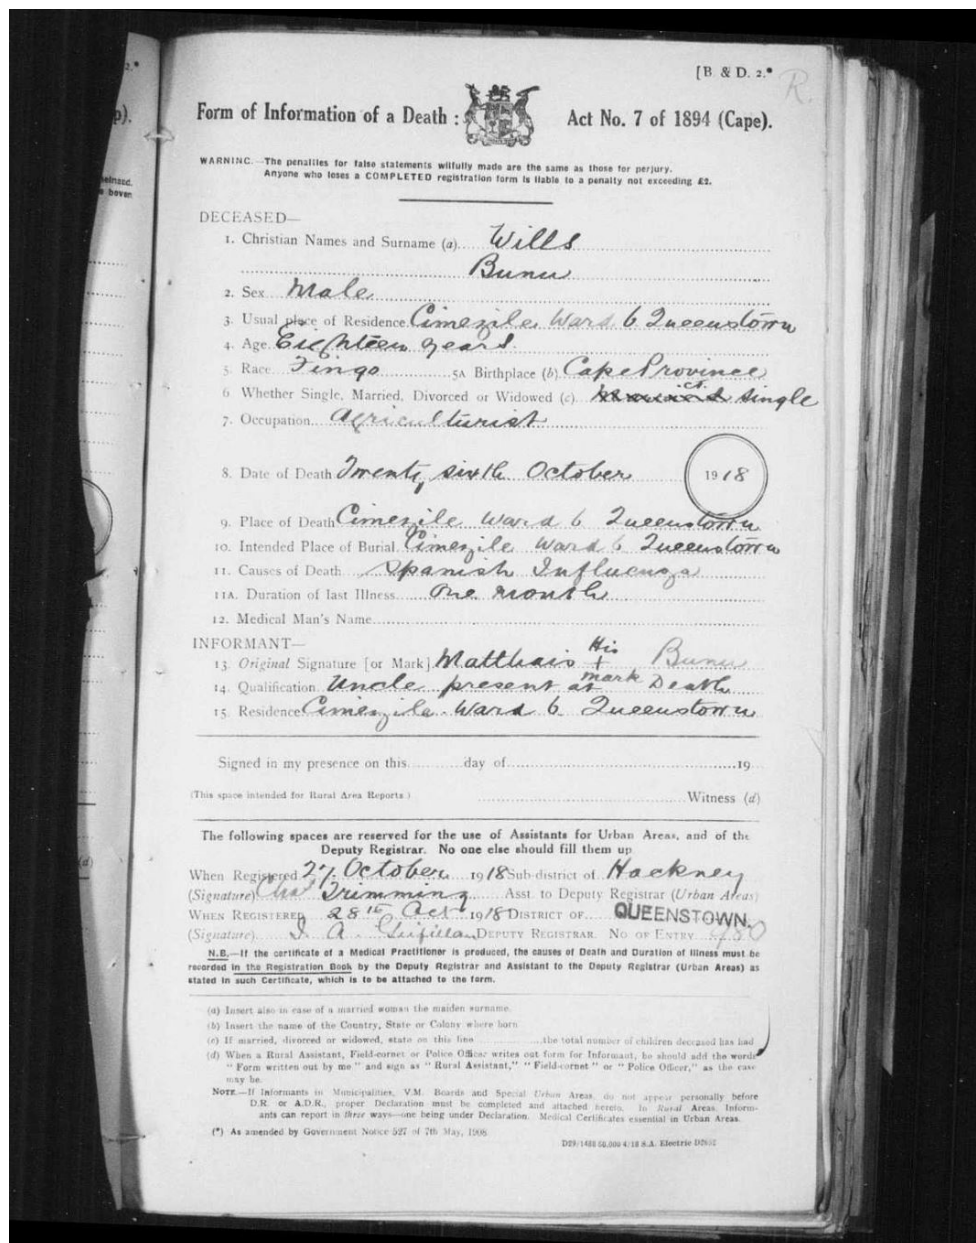 [B. & D. 2.*
R.
Form of Information of a Death : Act No. 7 of 1894 (Cape).
WARNING.—The penalties for false statements wilfully made are the same as those for perjury.
Anyone who loses a COMPLETED registration form is liable to a penalty not exceeding £2.
DECEASED—
1. Christian Names and Surname (a) Wills
Bunu
2. Sex Male
3. Usual place of Residence Cimezile Ward 6 Queenstown
4. Age Eighteen years
5. Race Fingo 5A Birthplace (b) Cape Province
6 Whether Single, Married, Divorced or Widowed (c) single
7. Occupation Agriculturist
8. Date of Death Twenty sixth October 1918
9. Place of Death Cimezile Ward 6 Queenstown
10. Intended Place of Burial Cimezile Ward 6 Queenstown
11. Causes of Death Spanish Influenza
11A. Duration of last Illness One month
12. Medical Man's Name
INFORMANT—
13. Original Signature [or Mark] Matthais His + mark Bunu
14. Qualification Uncle present at Death
15. Residence Cimezile Ward 6 Queenstown
Signed in my presence on this day of 19
(This space intended for Rural Area Reports.) Witness (d)
The following spaces are reserved for the use of Assistants for Urban Areas, and of the
Deputy Registrar. No one else should fill them up
When Registered 27 October 1918 Sub-district of Hackney
(Signature) Chas Trimming Asst. to Deputy Registrar (Urban Areas)
WHEN REGISTERED 28th Oct 1918 DISTRICT OF QUEENSTOWN.
(Signature) DEPUTY REGISTRAR. NO OF ENTRY 980
N.B.—If the certificate of a Medical Practitioner is produced, the causes of Death and Duration of Illness must be
recorded in the Registration Book by the Deputy Registrar and Assistant to the Deputy Registrar (Urban Areas) as
stated in such Certificate, which is to be attached to the form.
(a) Insert also in case of a married woman the maiden surname.
(b) Insert the name of the Country, State or Colony where born
(c) If married, divorced or widowed, state on this line the total number of children deceased has had
(d) When a Rural Assistant, Field-cornet or Police Officer writes out form for Informant, he should add the words
"Form written out by me" and sign as "Rural Assistant," "Field-cornet" or "Police Officer," as the case
may be.
NOTE.—If Informants in Municipalities, V.M. Boards and Special Urban Areas do not appear personally before
D.R. or A.D.R., proper Declaration must be completed and attached hereto. In Rural Areas, Inform-
ants can report in three ways—one being under Declaration. Medical Certificates essential in Urban Areas.
(*) As amended by Government Notice 527 of 7th May, 1908